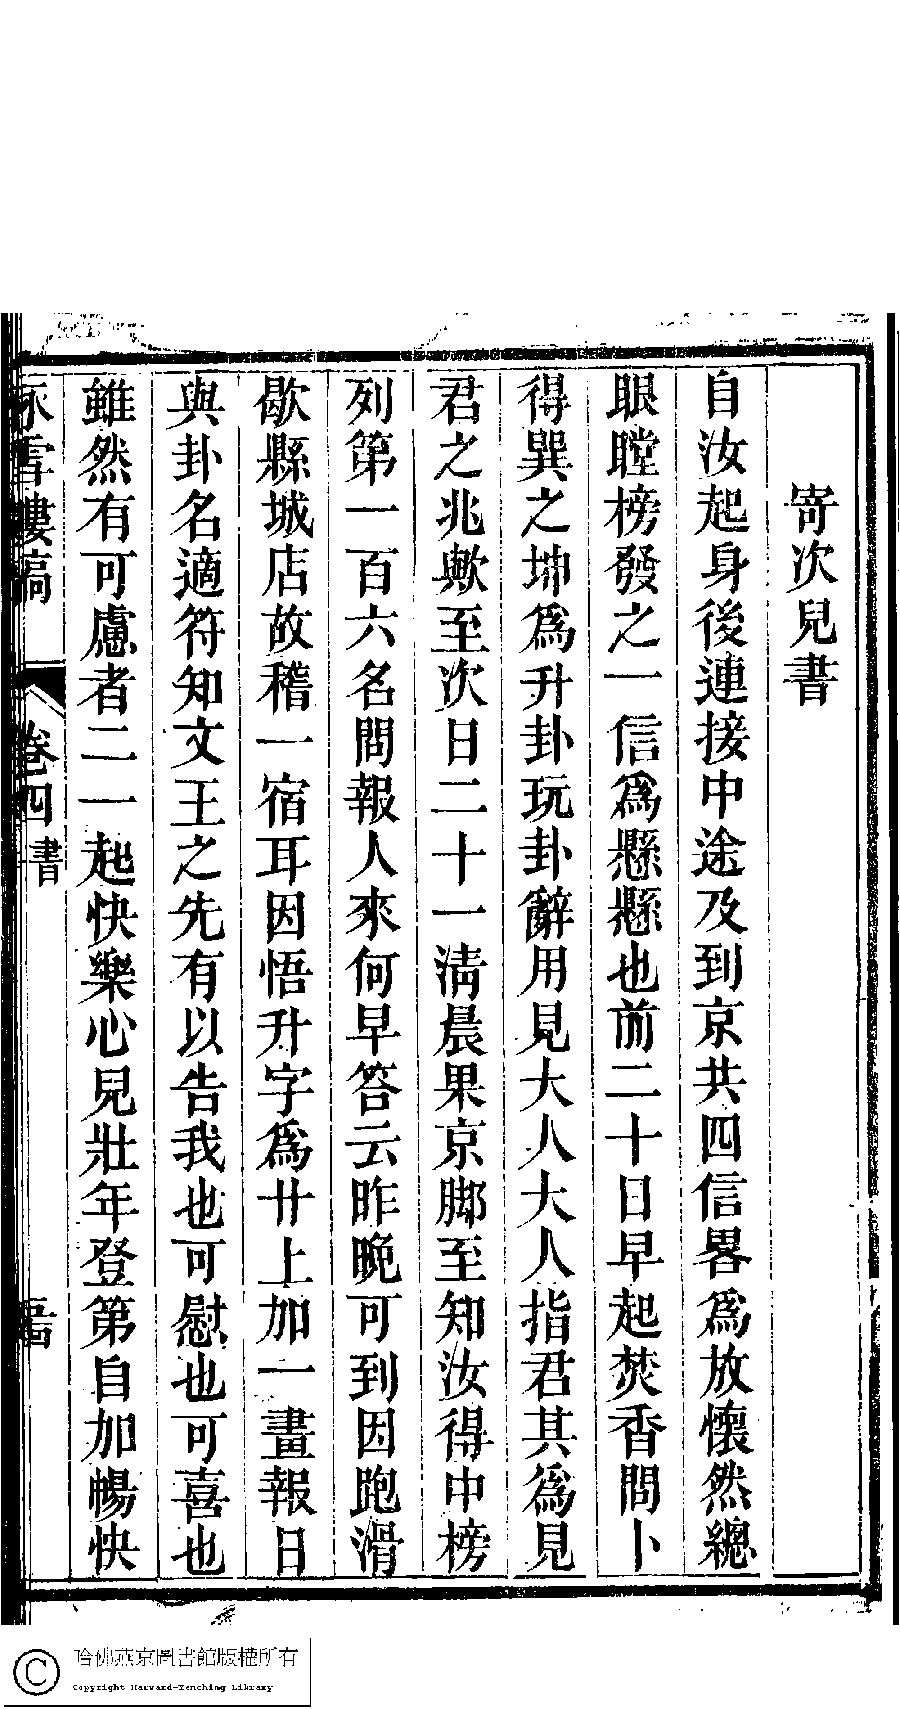 寄次兒書
自汝起身後連接中途及到京共四信畧爲放懷然總
眼瞠榜發之一信爲懸懸也前二十日早起焚香問卜
得巽之坤爲升卦玩卦辭用見大人大人指君其爲見
君之兆歟至次日二十一淸晨果京脚至知汝得中榜
列第一百六名問報人來何早答云昨晚可到因跑滑
歇縣城店故稽一宿耳因悟升字爲廾上加一畫報日
與卦名適符知文王之先有以告我也可慰也可喜也
雖然有可慮者二一起快樂心見壯年登第自加暢快
冰雪樓稿 卷四 書
哈佛燕京圖書館版權所有
Copyright Harvard-Yenching Library